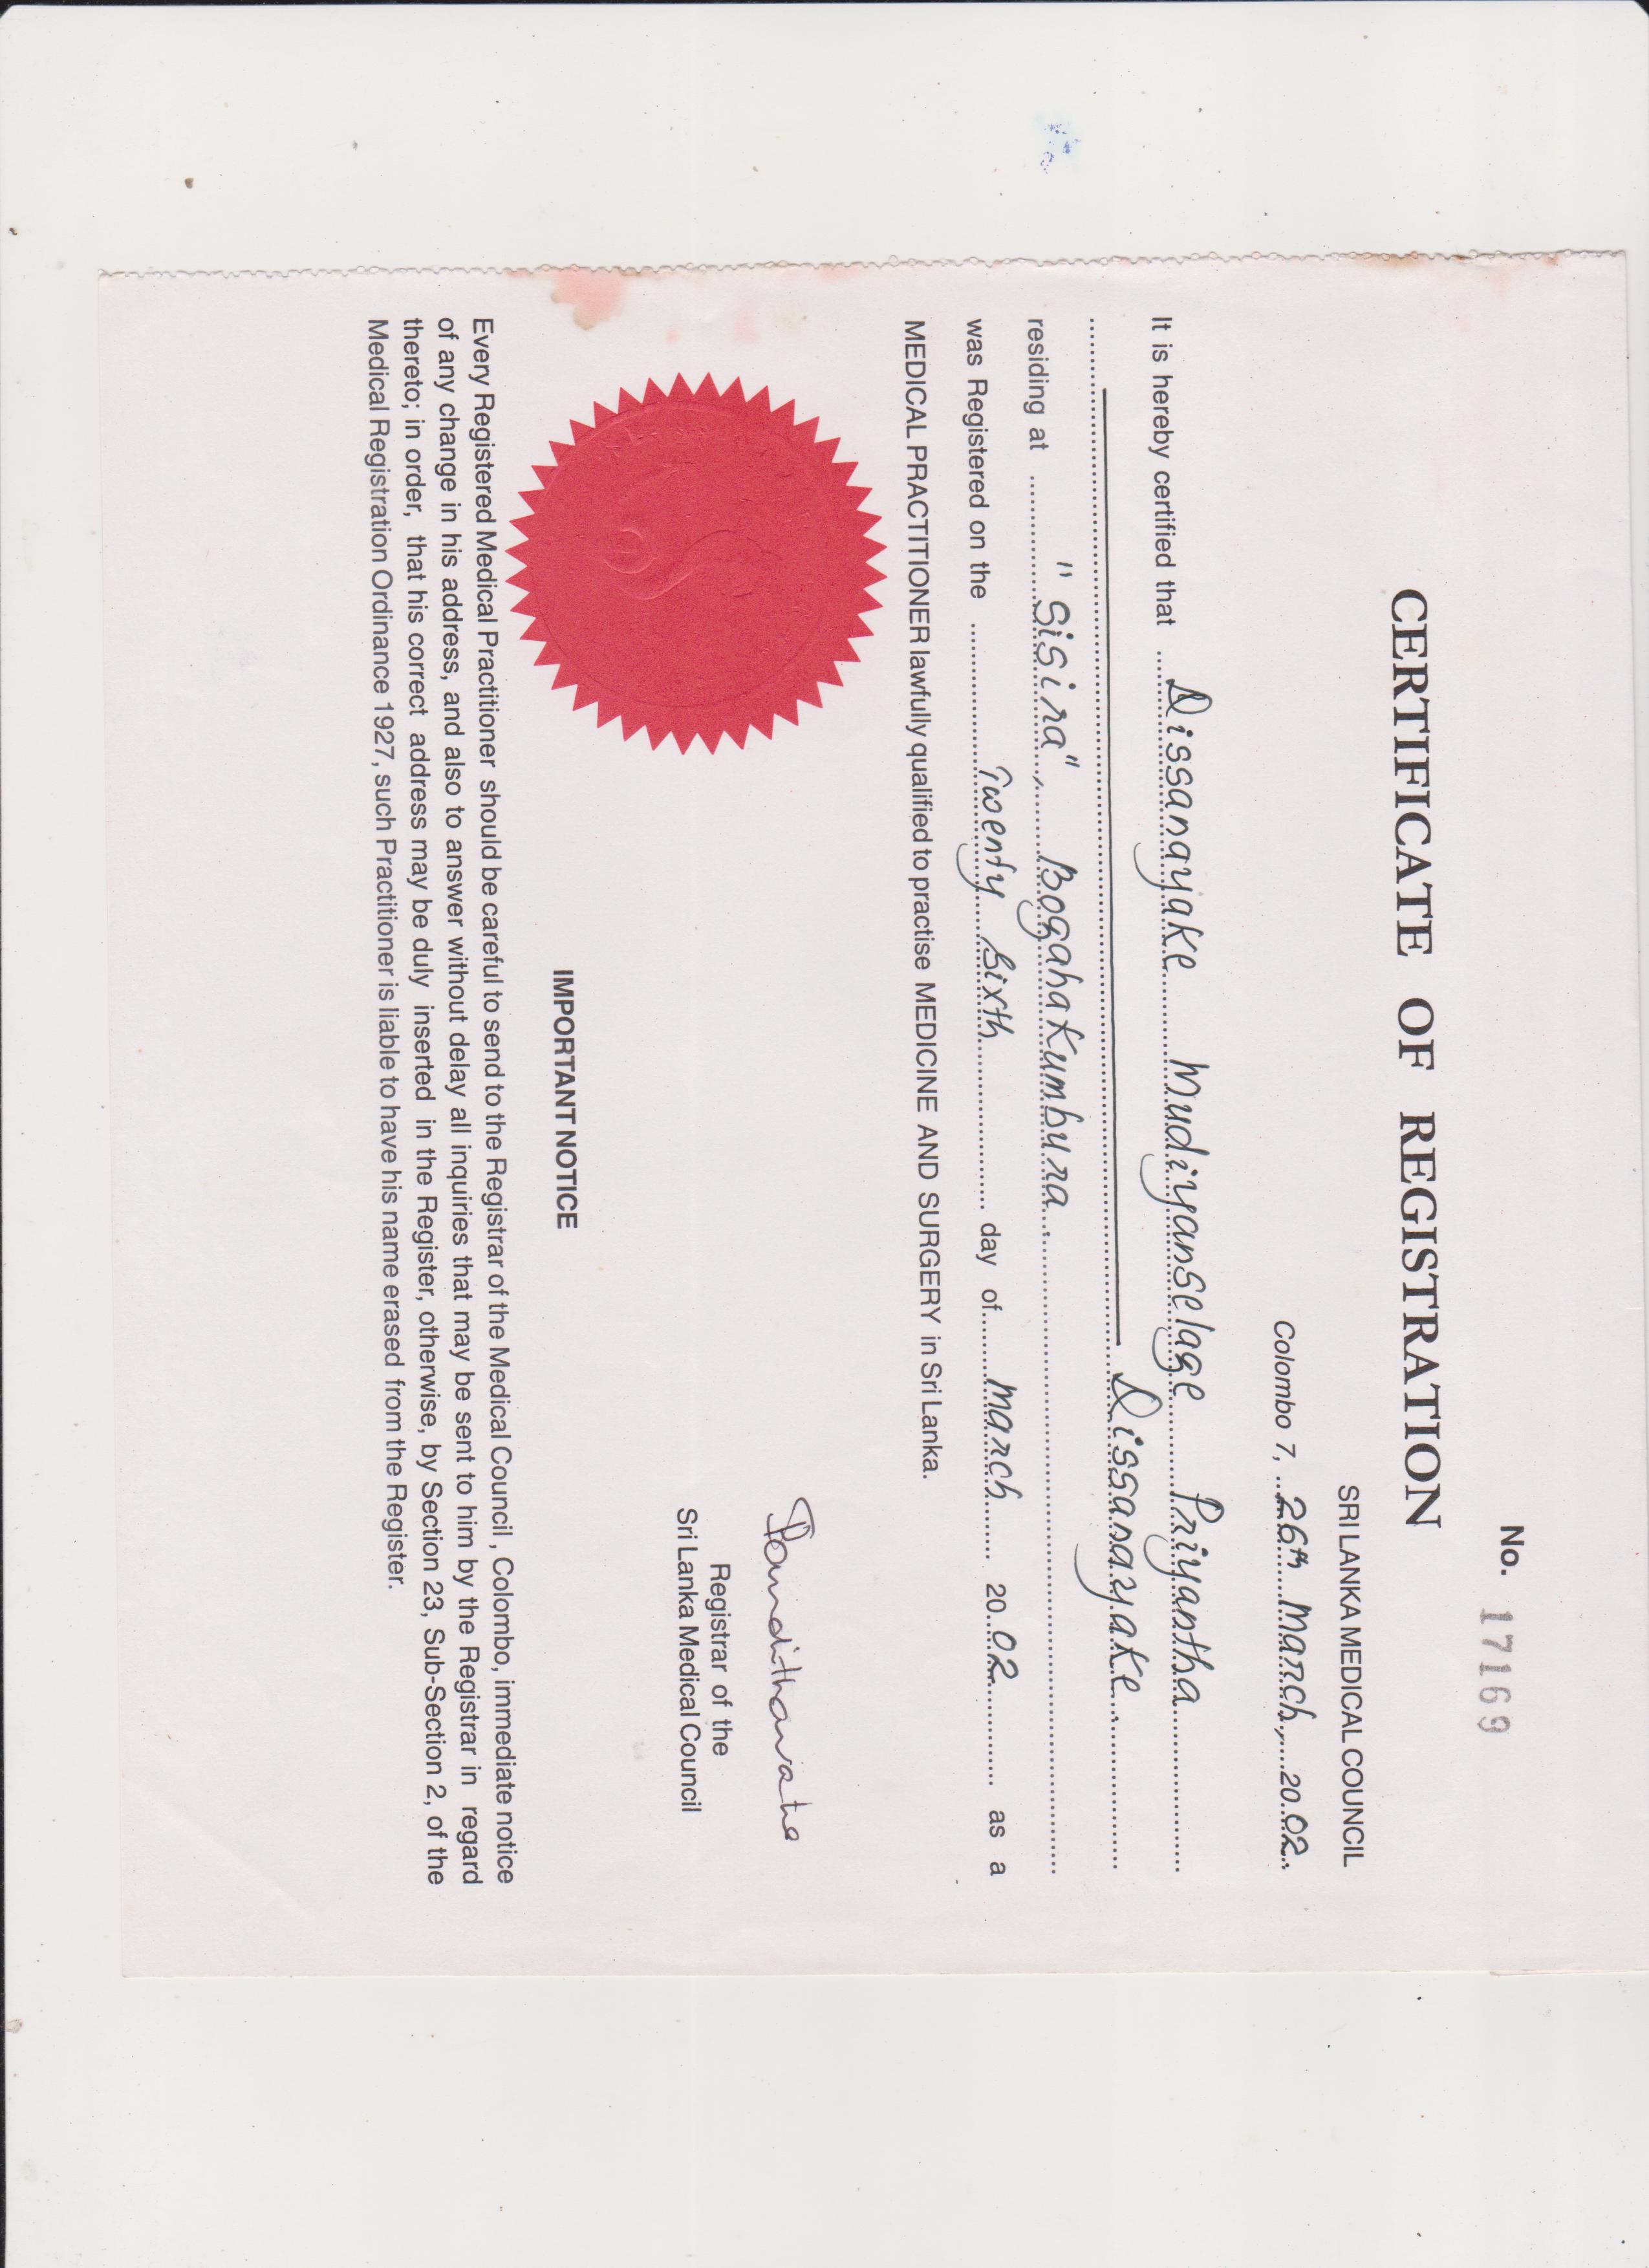 No. 17169
CERTIFICATE OF REGISTRATION
SRI LANKA MEDICAL COUNCIL
Colombo 7, 26th March, 2002
It is hereby certified that Dissanayake Mudiyanselage Priyantha
Dissanayake
residing at "Sisira", Bogahakumbura
was Registered on the Twenty Sixth day of March 2002 as a
MEDICAL PRACTITIONER lawfully qualified to practise MEDICINE AND SURGERY in Sri Lanka.
Registrar of the
Sri Lanka Medical Council
IMPORTANT NOTICE
Every Registered Medical Practitioner should be careful to send to the Registrar of the Medical Council , Colombo, immediate notice
of any change in his address, and also to answer without delay all inquiries that may be sent to him by the Registrar in regard
thereto; in order, that his correct address may be duly inserted in the Register, otherwise, by Section 23, Sub-Section 2, of the
Medical Registration Ordinance 1927, such Practitioner is liable to have his name erased from the Register.